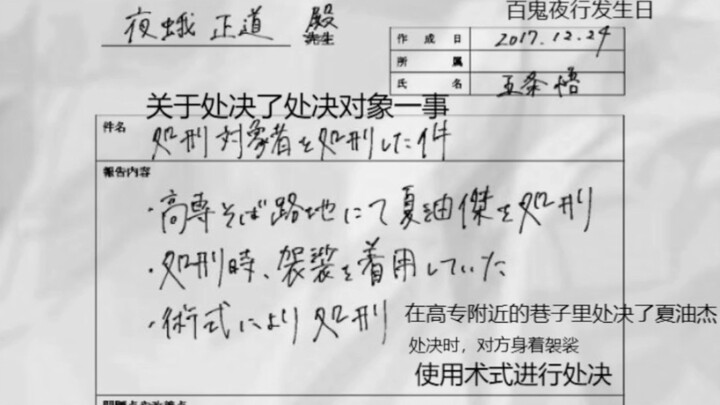 百鬼夜行发生日
夜蛾 正道 殿
先生
作成日 2017.12.24
所属
氏名 五条 悟
关于处决了处决对象一事
件名
処刑対象者を処刑した件
報告内容
・高専そば路地にて夏油傑を処刑
・処刑時、袈裟を着用していた
・術式により処刑
在高专附近的巷子里处决了夏油杰
处决时，对方身着袈裟
使用术式进行处决